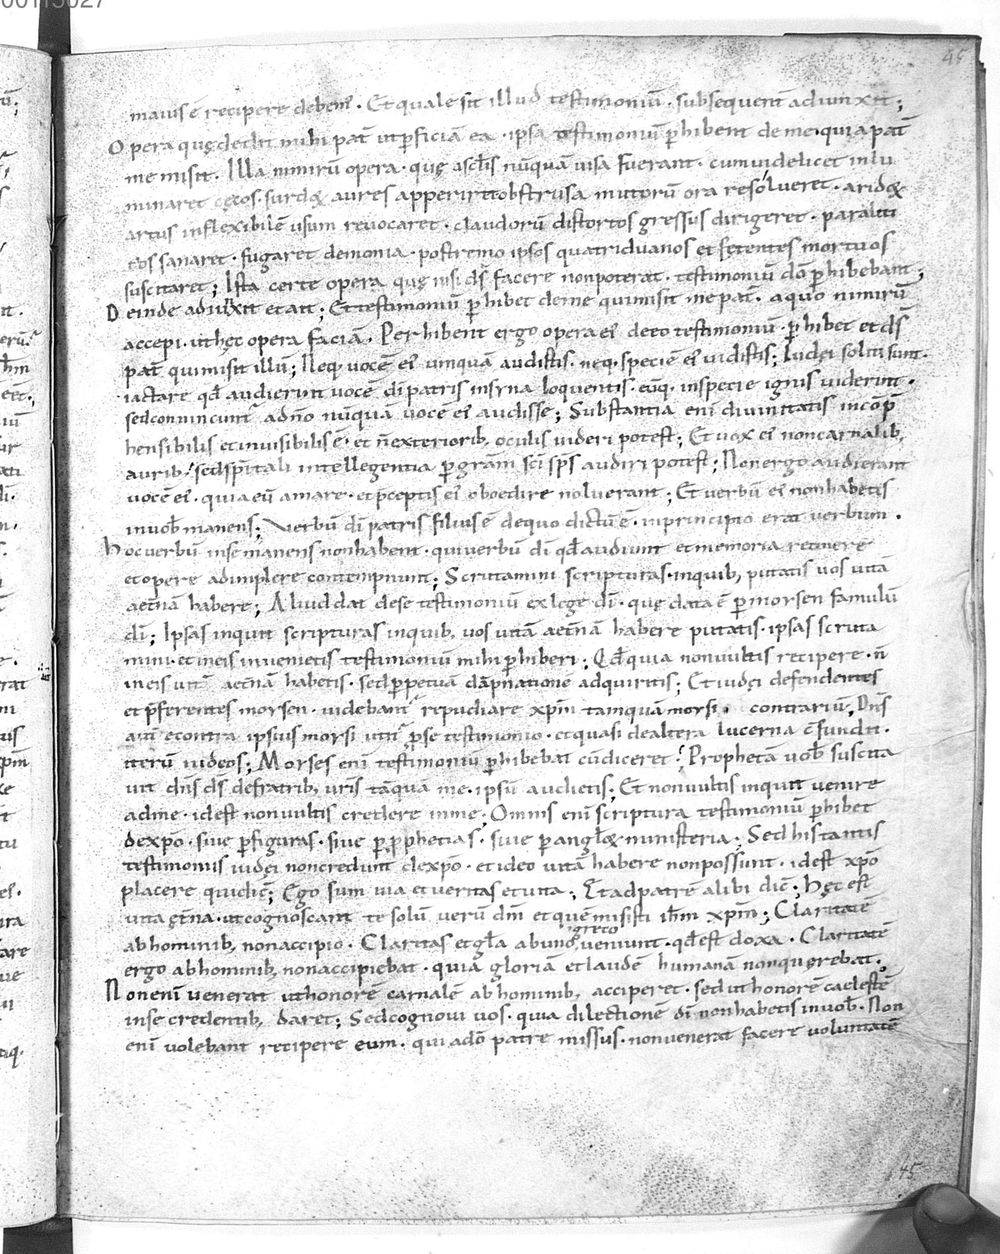 00115027
45
maius ē recipere debem̄. Et quale sit illud testimoniū. subsequent̄ adiunxit;
Opera quę dedit mihi pat̄ ut ꝑficiā ea. ipsa testimoniū ꝑhibent de me. quia pat̄
me misit. Illa nimirū opera. quę a sc̄lis nūquā uisa fuerant. cum uidelicet inlu
minaret cęcos. surdoꝝ aures apperiret obstrusa mutorū ora resolueret. aridoꝝ
artus inflexibilē usum reuocaret. claudorū distortos gressus dirigeret. paraliti
cos sanaret. fugaret demonia. postremo ipsos quatriduanos et fetentes mortuos
suscitaret; Ista certe opera quę nisi d̄s facere non poterat. testimoniū dō ꝑhibebant;
Deinde adiunxit et ait; Et testimoniū ꝑhibet de me qui misit me pat̄. a quo nimirū
accepi. ut hęc opera faciā. Perhibent ergo opera ei de eo testimoniū. ꝑhibet et d̄s
pat̄ qui misit illū; Neq; uocē ei umquā audistis. neq; speciē ei uidistis; Iudęi soliti sunt
iactare qd̄ audierint uocē dī patris in syna loquentis. eūq; in specie ignis uiderint.
sed conuincunt̄ a dn̄o nūquā uocē ei audisse; Substantia eni diuinitatis incōp̄
hensibilis et inuisibilis ē. et n̄ exteriorib; oculis uideri potest; Et uox ei non carnalib;
aurib; sed sp̄itali intellegentia ꝑ grām sc̄i sp̄s audiri potest; Non ergo audierant
uocē ei. quia eū amare. et p̄ceptis ei oboedire noluerant; Et uerbū ei non habetis
in uob̄ manens; Verbū dī patris filius ē de quo dictū ē. in principio erat uerbum.
Hoc uerbū in se manens non habent. qui uerbū dī qd̄ audiunt et memoria retinere
et opere adimplere contempnunt; Scrutamini scripturas. in quib; putatis uos uitā
aet̄nā habere; Aliud dat de se testimoniū ex lege dī. quę data ē ꝑ moysen famulū
dī; Ipsas inquit scripturas in quib; uos uitā aet̄nā habere putatis. ipsas scruta
mini. et in eis inuenietis testimoniū mihi ꝑhiberi; Qd̄ quia non uultis recipere. n̄
in eis uitā aet̄nā habetis. sed ꝑpetuā dāpnatione adquiritis; Et iudęi defendentes
et p̄ferentes moysen. uidebant̄ repudiare xp̄m tamquā moysi contrariū, Dn̄s
aut̄ econtra ipsius moysi utit̄ ꝑ se testimonio. et quasi de altera lucerna c̄fundit.
iterū iudeos; Moyses eni testimoniū ꝑhibebat cū diceret; Prophetā uob̄ suscita
uit dn̄s d̄s de fratrib; uris tāquā me. ipsū audietis; Et non uultis inquit uenire
ad me. id est non uultis credere in me; Omnis eni scriptura testimoniū ꝑhibet
de xp̄o. siue ꝑ figuras. siue ꝑ p̄phetias. siue ꝑ angloꝝ ministeria; Sed his tantis
testimoniis iudęi non credunt de xp̄o. et ideo uitā habere non possunt. id est xp̄o
placere qui dic̄; Ego sum uia et ueritas et uita; Et ad patrē alibi dic̄; Hęc est
uita ęt̄na. ut cognoscant te solū uerū dm̄ et quē misisti ih̄m xp̄m; Claritatē
ab hominib; non accipio. Claritas et gl̄a ab uno greco ueniunt. qd̄ est doxa. Claritatē
ergo ab hominib; non accipiebat. quia gloriā et laudē humanā non quęrebat.
Non eni uenerat ut honorē carnalē ab hominib; acciperet. sed ut honorē caelestē
in se credentib; daret; Sed cognoui uos. quia dilectionē dī non habetis in uob̄. Non
eni uolebant recipere eum. qui a dō patre missus. non uenerat facere uoluntatē
45